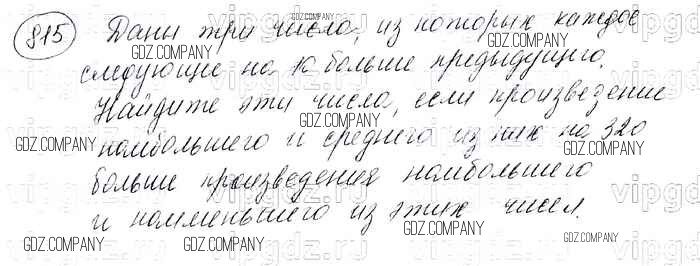 815 Даны три числа, из которых каждое
GDZ.COMPANY GDZ.COMPANY
следующие на 10 больше предыдущего.
GDZ.COMPANY
Найдите эти числа, если произведение
GDZ.COMPANY GDZ.COMPANY GDZ.COMPANY
наибольшего и среднего из них на 320
GDZ.COMPANY GDZ.COMPANY
больше произведения наибольшего
GDZ.COMPANY GDZ.COMPANY vipgdz.ru
и наименьшего из этих чисел.
GDZ.COMPANY GDZ.COMPANY GDZ.COMPANY GDZ.COMPANY